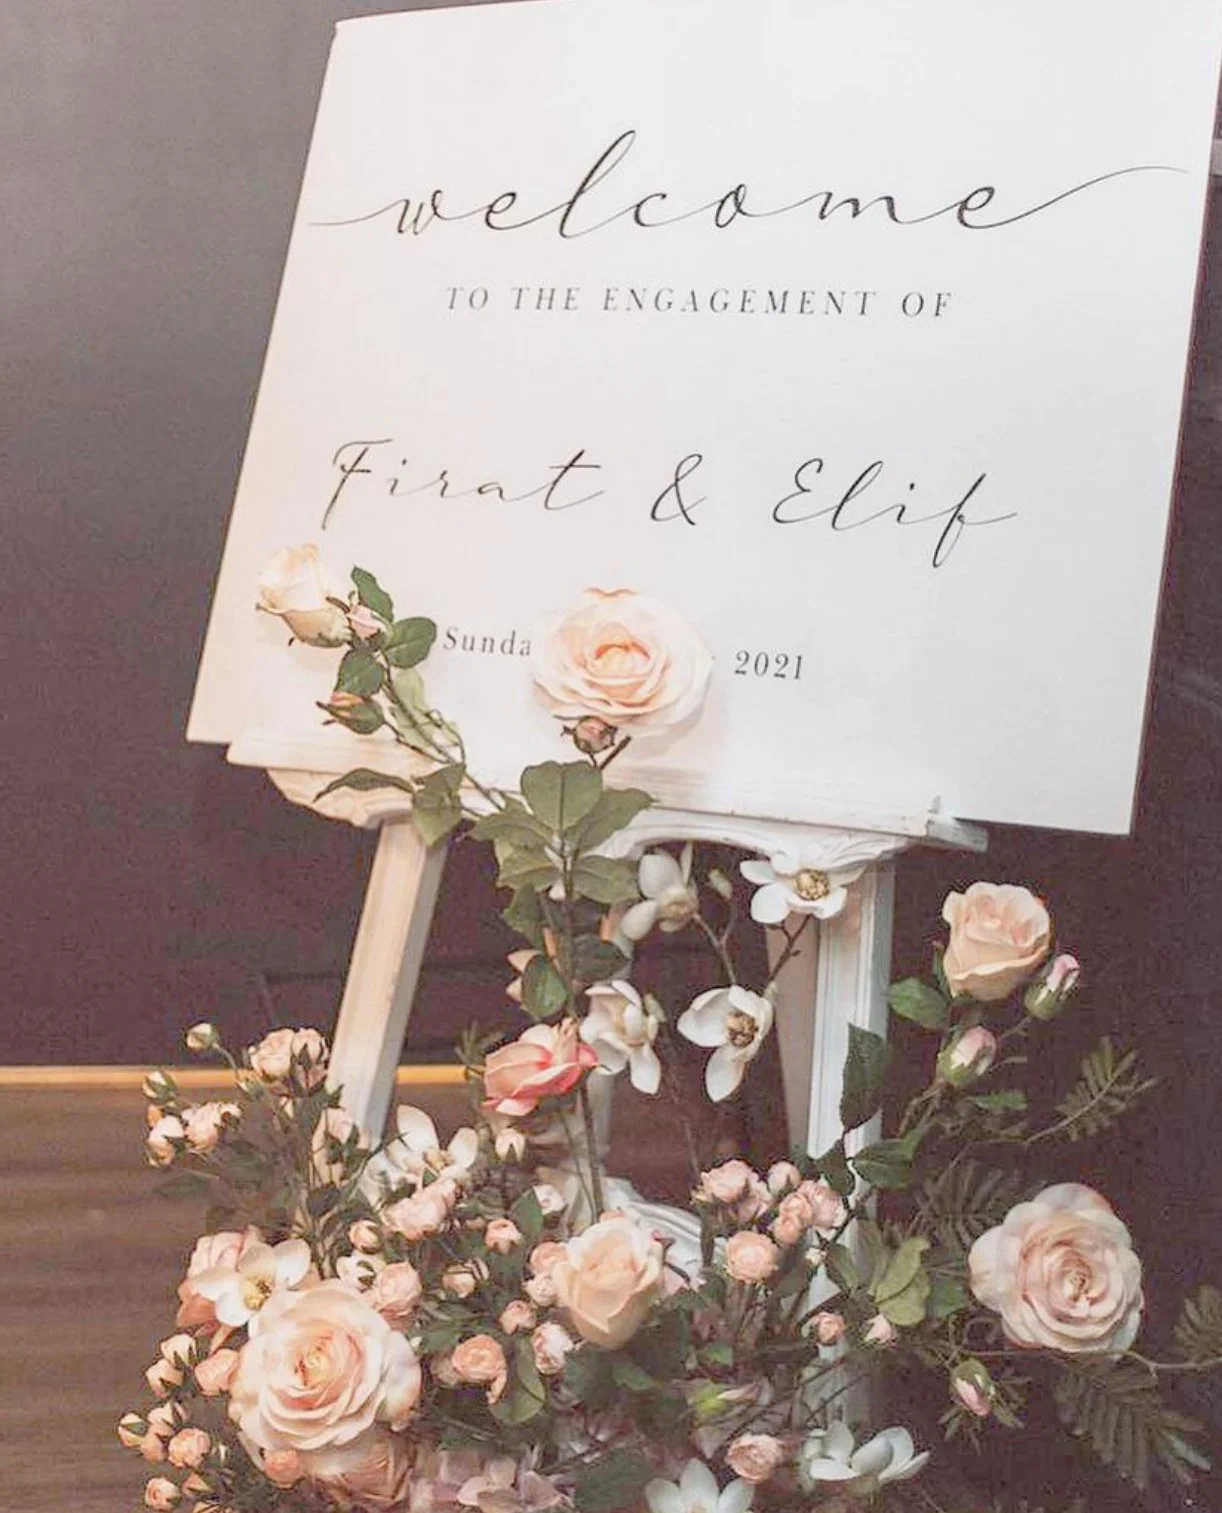 welcome
TO THE ENGAGEMENT OF
Firat & Elif
2021